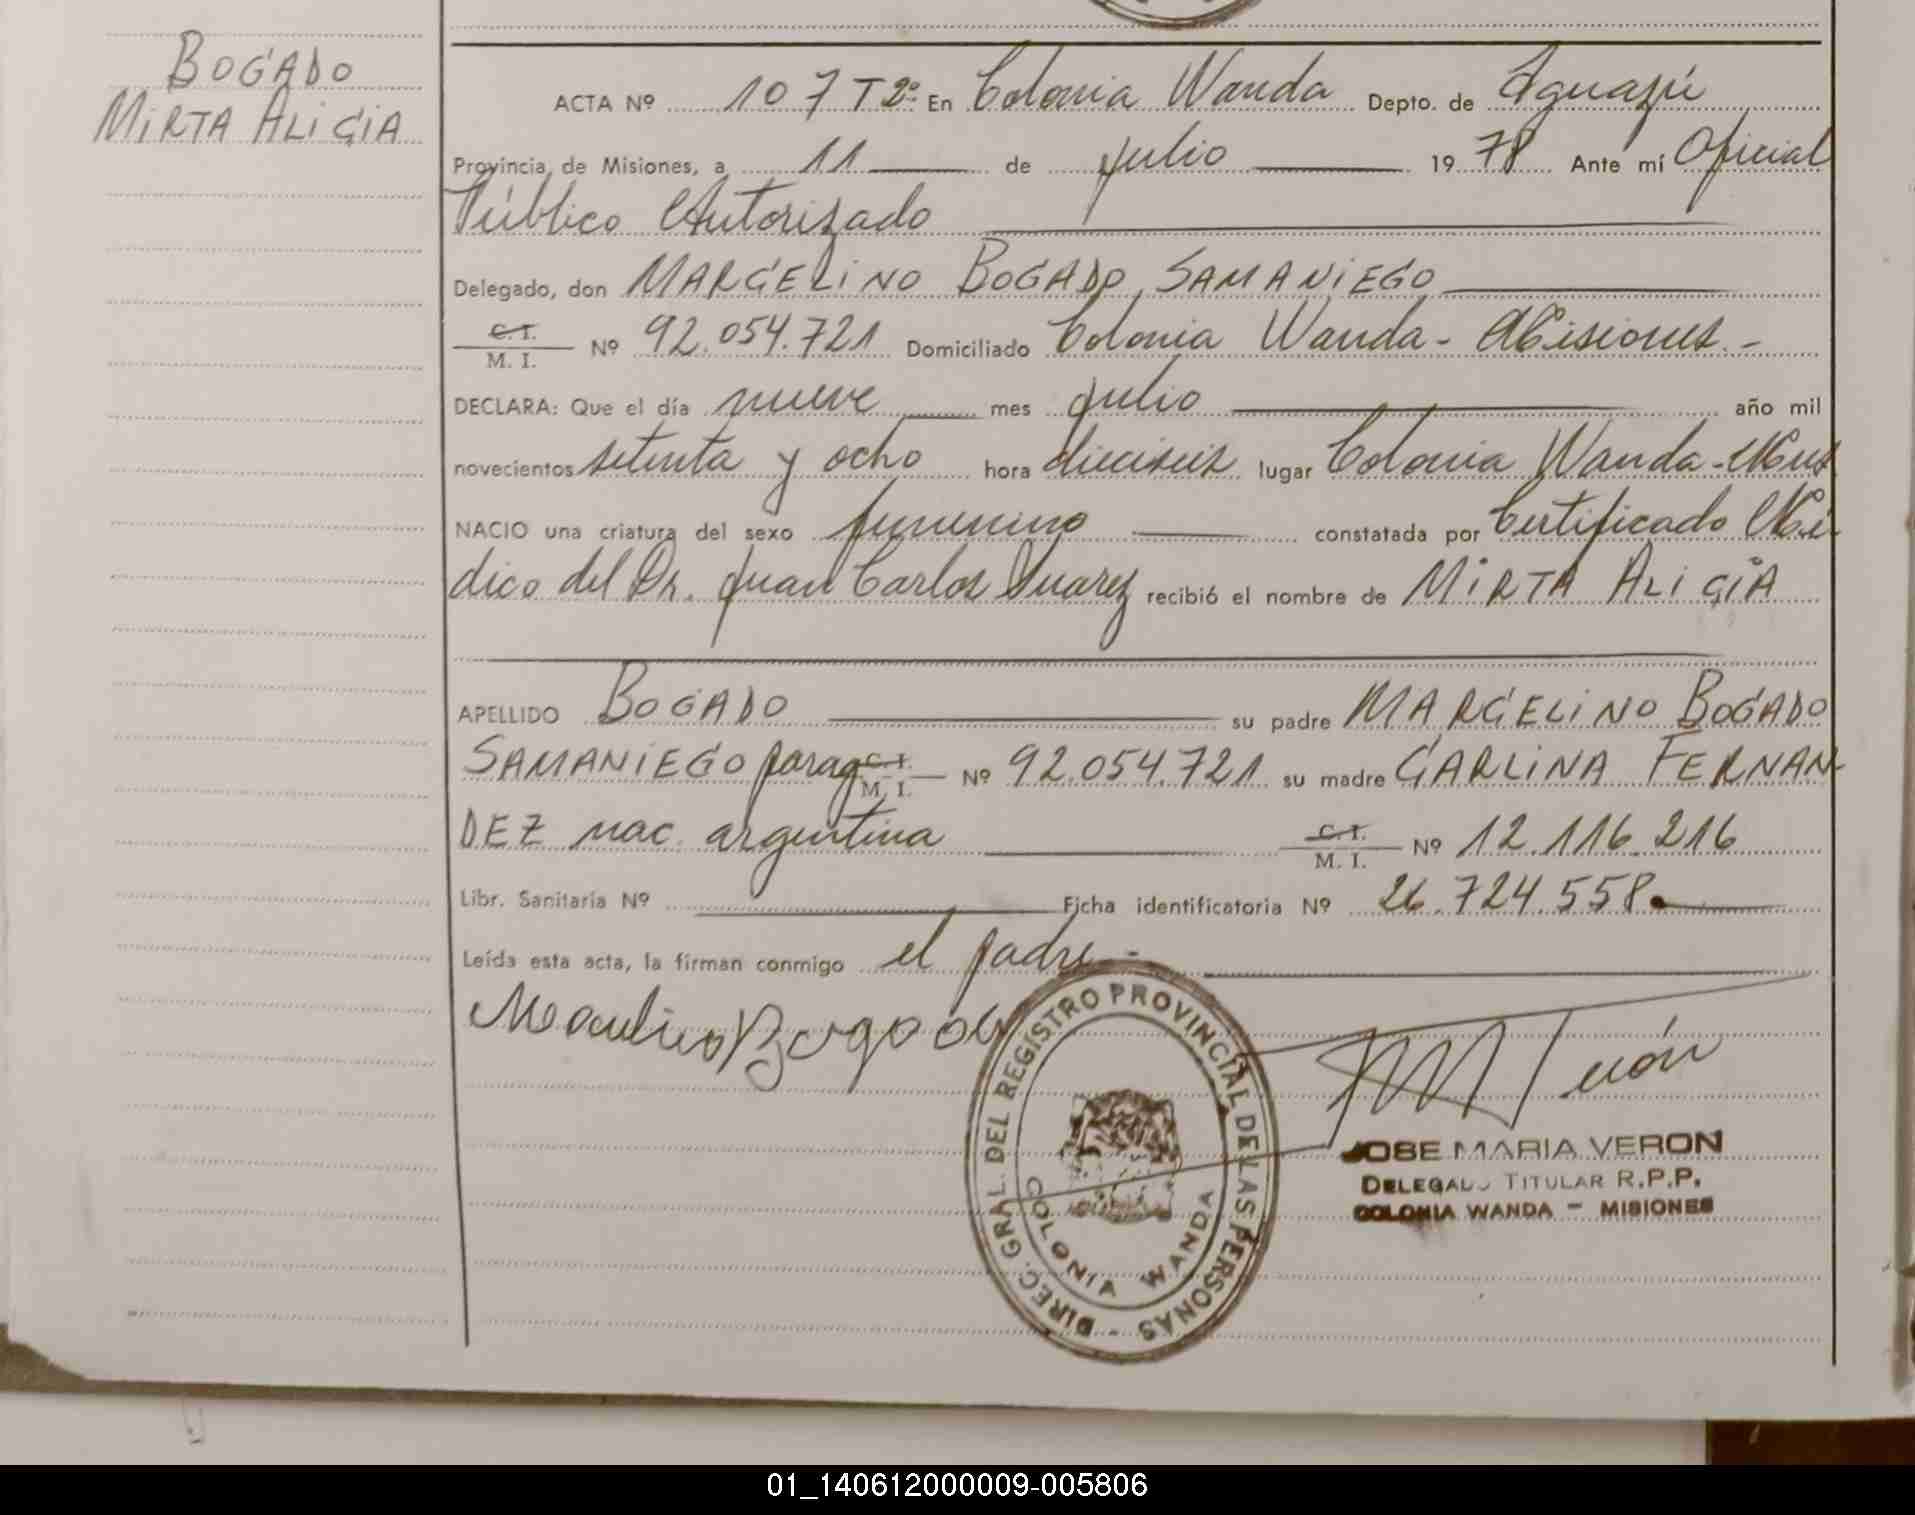 BOGADO
MIRTA ALICIA
ACTA Nº 107 Tº 2º En Colonia Wanda Depto. de Iguazú
Provincia de Misiones, a 11 de julio 1978 Ante mí Oficial
Público Autorizado
Delegado, don MARCELINO BOGADO SAMANIEGO
C.I. M. I. Nº 92.054.721 Domiciliado Colonia Wanda - Misiones. -
DECLARA: Que el día nueve mes julio año mil
novecientos setenta y ocho hora dieciseis lugar Colonia Wanda - Mnes
NACIO una criatura del sexo femenino constatada por Certificado Mé
dico del Dr. Juan Carlos Suarez recibió el nombre de MIRTA ALICIA
APELLIDO BOGADO su padre MARCELINO BOGADO
SAMANIEGO parag C.I. M. I. Nº 92.054.721 su madre CARLINA FERNAN
DEZ nac. argentina C.I. M. I. Nº 12.116.216
Libr. Sanitaria Nº Ficha identificatoria Nº 26.724.558
Leída esta acta, la firman conmigo el padre. -
DIREC. GRAL. DEL REGISTRO PROVINCIAL DE LAS PERSONAS -
COLONIA WANDA
JOSE MARIA VERON
DELEGADO TITULAR R.P.P.
COLONIA WANDA - MISIONES
01_140612000009-005806